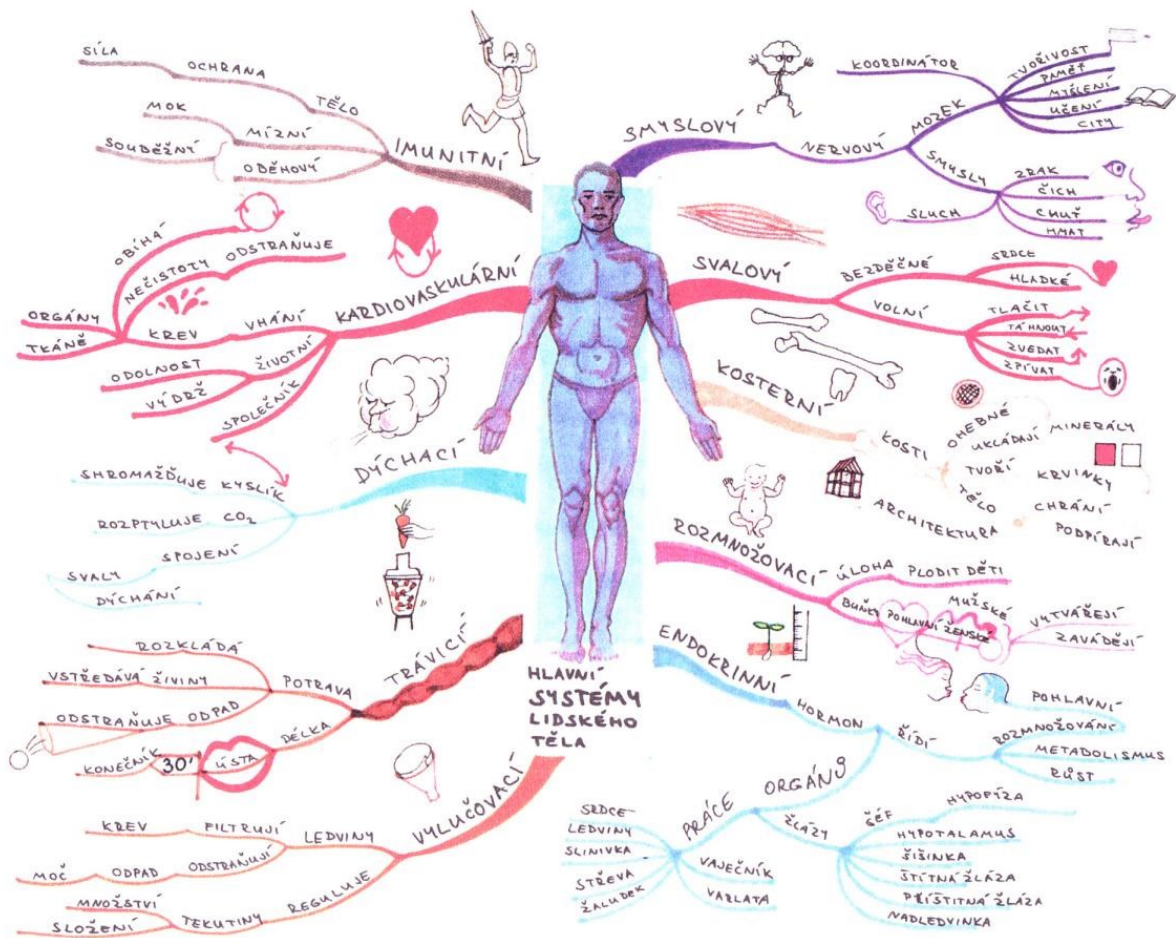 HLAVNÍ
SYSTÉMY
LIDSKÉHO
TĚLA
IMUNITNÍ
TĚLO
OCHRANA
SÍLA
MÍZNÍ
MOK
ODĚHOVÝ
SOUDĚŽNÝ
KARDIOVASKULÁRNÍ
VHÁNÍ
KREV
OBÍHÁ
NEČISTOTY
ODSTRAŇUJE
ORGÁNY
TKÁNĚ
ŽIVOTNÍ
ODOLNOST
VÝDRŽ
SPOLEČNÍK
DÝCHACÍ
SHROMAŽĎUJE KYSLÍK
ROZPTYLUJE CO₂
SPOJENÍ
SVALY
DÝCHÁNÍ
TRÁVICÍ
POTRAVA
ROZKLÁDÁ
VSTŘEDÁVÁ ŽIVINY
ODSTRAŇUJE ODPAD
DÉLKA
ÚSTA
30'
KONEČNÍK
VYLUČOVACÍ
LEDVINY
FILTRUJÍ
KREV
ODSTRAŇUJÍ
ODPAD
MOČ
REGULUJE
TEKUTINY
MNOŽSTVÍ
SLOŽENÍ
SMYSLOVÝ
NERVOVÝ
MOZEK
KOORDINÁTOR
TVOŘIVOST
PAMĚŤ
MYŠLENÍ
UČENÍ
CITY
SMYSLY
ZRAK
ČICH
CHUŤ
HMAT
SLUCH
SVALOVÝ
BEZDĚČNÉ
SRDCE
HLADKÉ
VOLNÍ
TLAČIT
TÁHNOUT
ZVEDAT
ZPÍVAT
KOSTERNÍ
KOSTI
OHEBNÉ
UKLÁDAJÍ MINERÁLY
TVOŘÍ
KRVINKY
TĚLO
CHRÁNÍ
PODPÍRAJÍ
ARCHITEKTURA
ROZMNOŽOVACÍ
ÚLOHA
PLODIT DĚTI
BUŇKY
POHLAVNÍ
MUŽSKÉ
ŽENSKÉ
VYTVÁŘEJÍ
ZAVÁDĚJÍ
ENDOKRINNÍ
HORMON
ŘÍDÍ
POHLAVNÍ
ROZMNOŽOVÁNÍ
METABOLISMUS
RŮST
ORGÁNŮ
PRÁCE
SRDCE
LEDVINY
SLINIVKA
STŘEVA
ŽALUDEK
VAJEČNÍK
VARLATA
ŽLÁZY
ŠÉF
HYPOFÝZA
HYPOTALAMUS
ŠIŠINKA
ŠTÍTNÁ ŽLÁZA
PŘÍŠTITNÁ ŽLÁZA
NADLEDVINKA